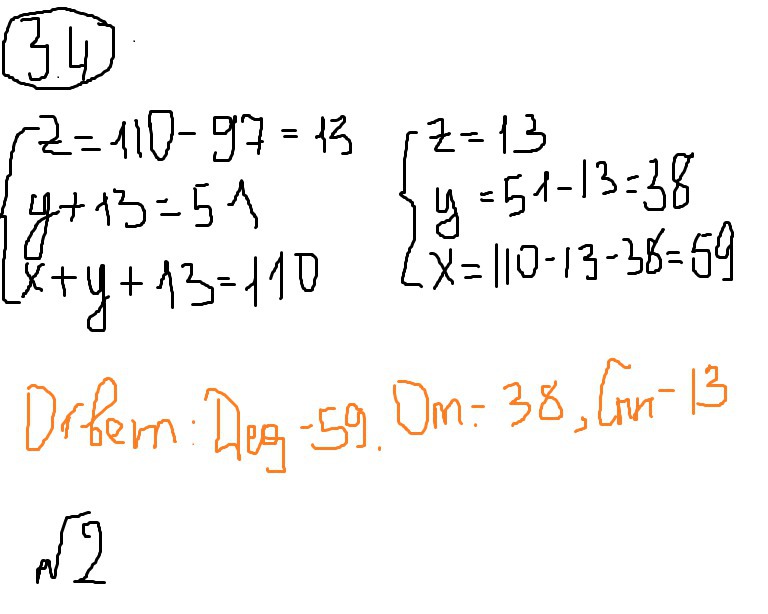 34
z=110-97=13
y+13=51
x+y+13=110
z=13
y=51-13=38
x=110-13-38=59
Ответ: Дед-59. От.-38, Сын-13
№2